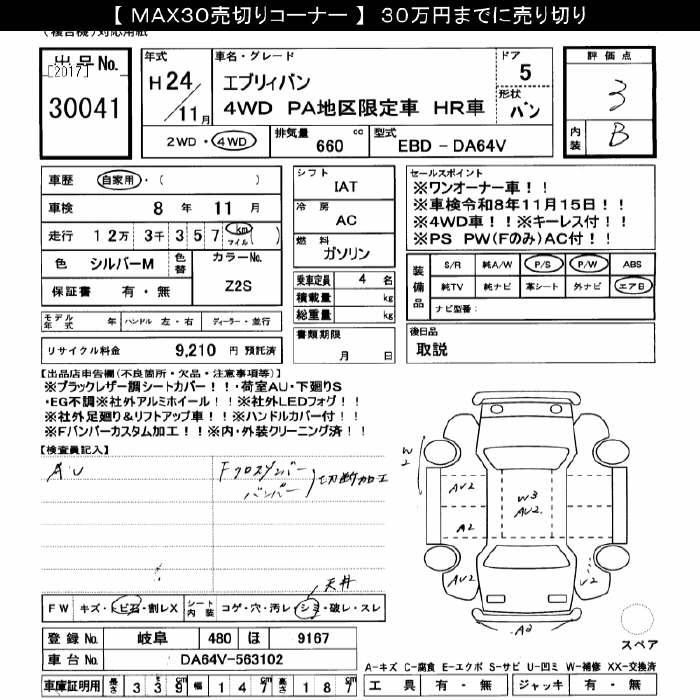 【 MAX30売切りコーナー 】 30万円までに売り切り
(複合機)対応用紙
出品No.
[2017]
30041
年式
H24/11月
車名・グレード
エブリィバン
4WD PA地区限定車 HR車
ドア
5
形状
バン
2WD・4WD
排気量 660 cc
型式 EBD - DA64V
評価点
3
内装
B
車歴 自家用・( )
車検 8年 11月
走行 12万 3千 357 km マイル ( )
色 シルバーM 色替
カラーNo.
Z2S
保証書 有・無
モデル年式 年 ハンドル 左・右 ディーラー・並行
リサイクル料金 9,210 円 預託済
シフト
IAT
冷房
AC
燃料
ガソリン
乗車定員 4 名
積載量 kg
総重量 kg
書類期限
月 日
セールスポイント
※ワンオーナー車！！
※車検令和8年11月15日！！
※4WD車！！※キーレス付！！
※PS PW(Fのみ)AC付！！
装備品
S/R 純A/W P/S P/W ABS
純TV 純ナビ 革シート 外ナビ エアB
ナビ型番：
後日品
取説
【出品店申告欄(不良箇所・欠品・注意事項等)】
※ブラックレザー調シートカバー！！・荷室AU・下廻りS
・EG不調※社外アルミホイール！！※社外LEDフォグ！！
※社外足廻り&リフトアップ車！！※ハンドルカバー付！！
※Fバンパーカスタム加工！！※内・外装クリーニング済！！
【検査員記入】
AU
Fクロスメンバー
バンパー
切断加工
天井
W2
AU2
A2
W3
AU2
U2
A2
FW キズ・トビ石・割レX
シート内装 コゲ・穴・汚レ・シミ・破レ・スレ
登録No. 岐阜 480 ほ 9167
車台No. DA64V-563102
車庫証明用 長さ 339 cm 幅 147 cm 高さ 187 cm
スペア
A-キズ C-腐食 E-エクボ S-サビ U-凹ミ W-補修 XX-交換済
工具 有・無 ジャッキ 有・無